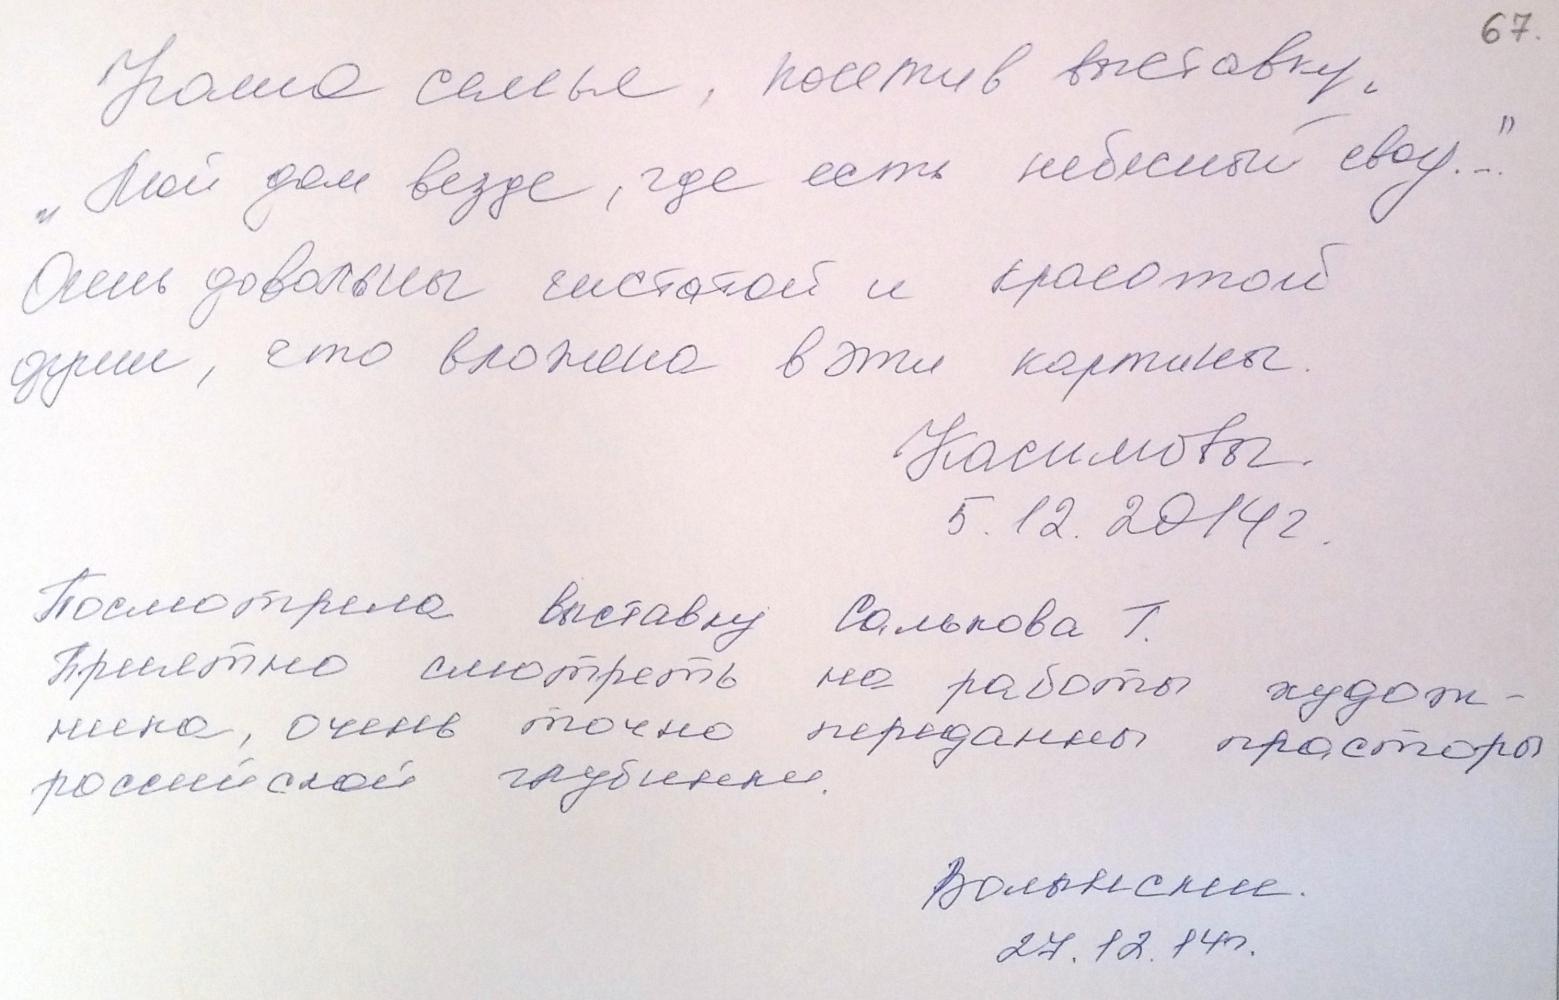 67.
Наша семья, посетив выставку,
„Мой дом везде, где есть небесный свод..."
Очень довольны чистотой и красотой
души, что вложена в эти картины.
Касимовы.
5.12.2014г.
Посмотрела выставку Салькова Т.
Приятно смотреть на работы худож-
ника, очень точно переданны просторы
российской глубинки.
Волынские.
27.12.14г.